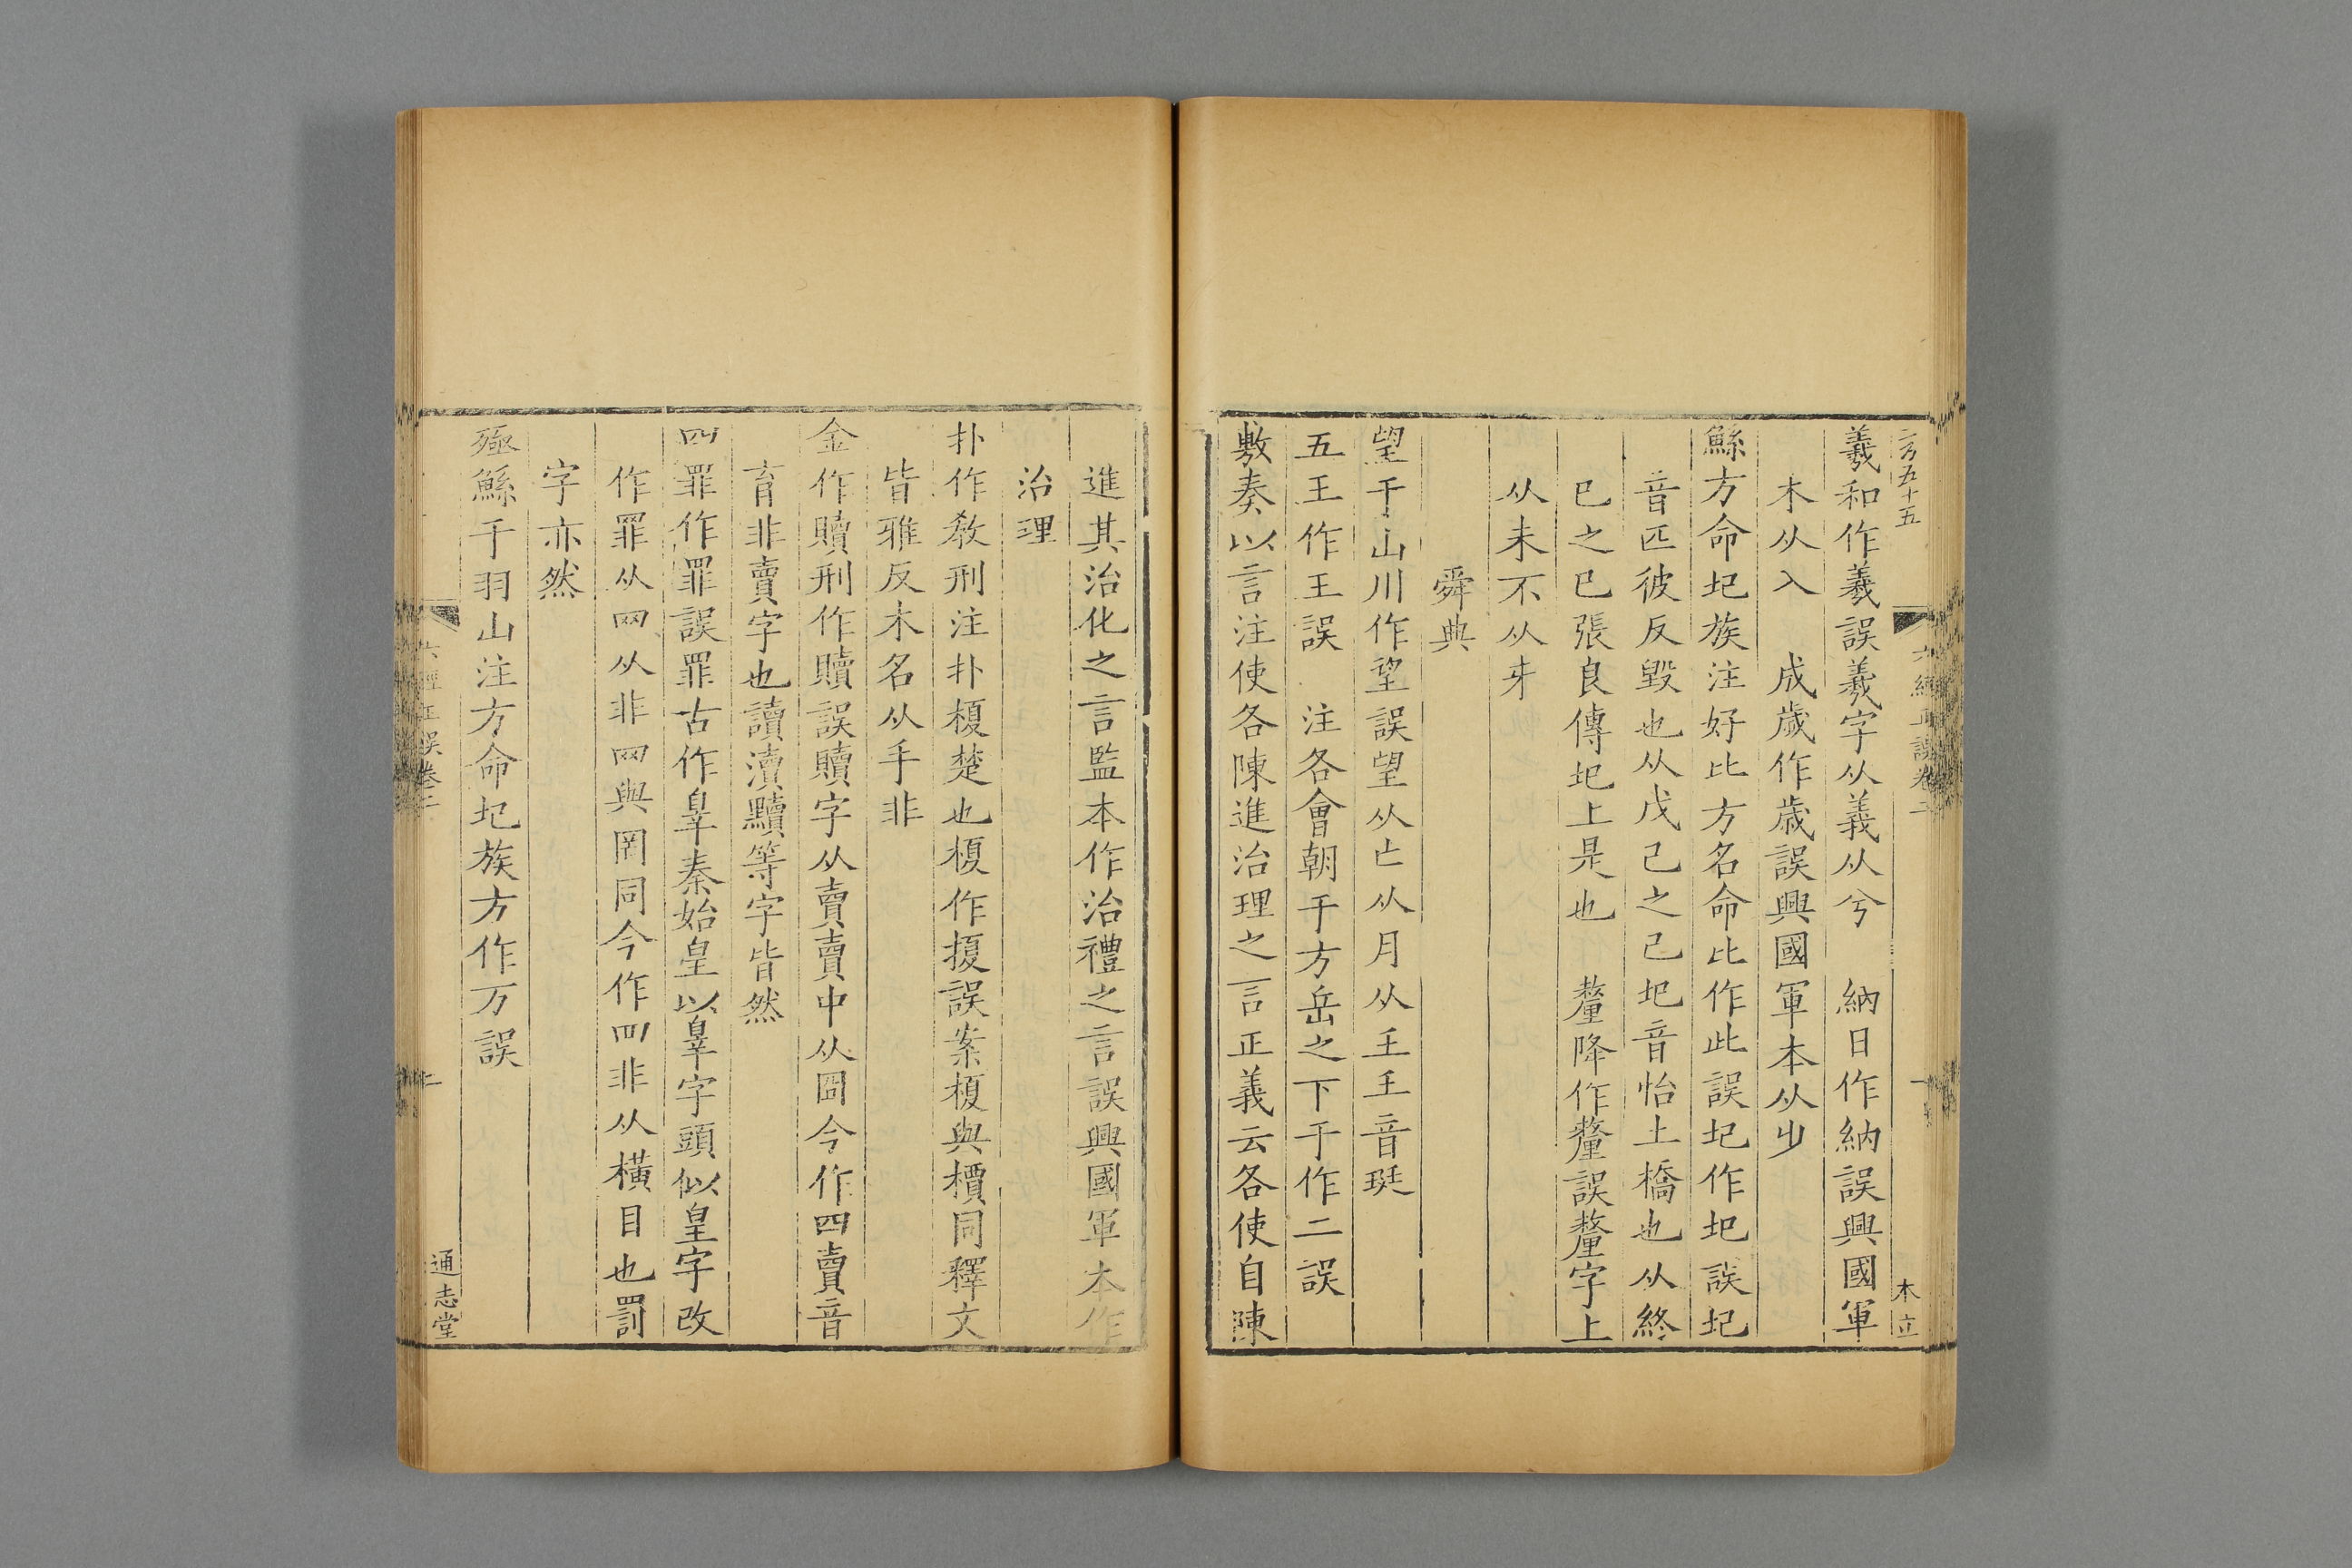 二百五十五
六經正誤卷二
一
木立
羲和作義誤羲字从義从兮　納日作納誤興國軍
木从入　成歲作歳誤興國軍本从少
鯀方命圮族注好比方名命比作此誤圮作圯誤圮
音匹彼反毀也从戊己之己圯音怡土橋也从終
巳之巳張良傳圯上是也　釐降作釐誤釐字上
从未不从牙
舜典
望于山川作朢誤望从亡从月从𡈼𡈼音珽
五玉作王誤　注各會朝于方岳之下于作二誤
敷奏以言注使各陳進治理之言正義云各使自陳
進其治化之言監本作治禮之言誤興國軍本作
治理
扑作教刑注扑榎楚也榎作㨋誤案榎與檟同釋文
皆雅反木名从手非
金作贖刑作贖誤贖字从𧶠𧶠中从囧今作四𧶠音
育非賣字也讀瀆黷等字皆然
四罪作罪誤罪古作辠秦始皇以辠字頭似皇字改
作罪从网从非网與罔同今作罒非从橫目也罰
字亦然
殛鯀于羽山注方命圮族方作万誤
六經正誤卷二
二
通志堂